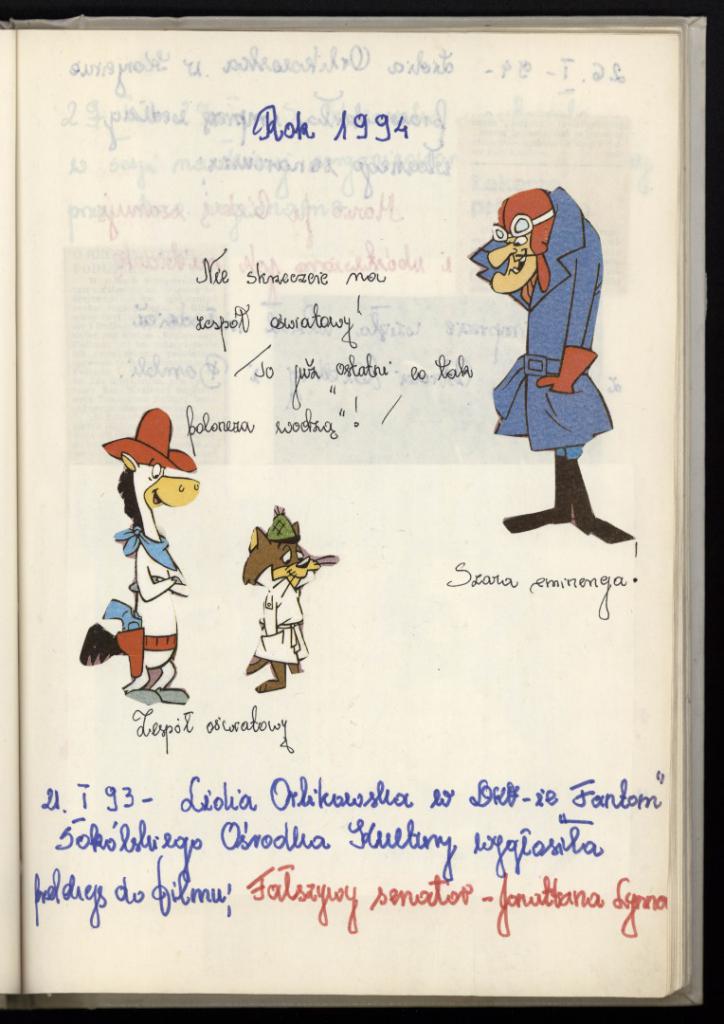 Rok 1994
Nie skrzeczcie na
zespół oświatowy!
/ to już "ostatni co tak
poloneza wodzą"! /
Szara eminencja!
Zespół oświatowy
21. I 93 - Lidia Orlikowska w DKF-ie "Fantom"
Sokólskiego Ośrodka Kultury wygłosiła
prelekcję do filmu: Fałszywy senator - Jonathana Lynna